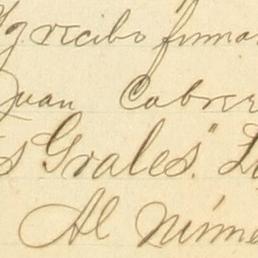 y recibo firma
Juan Cabrer
s Grales". L
Al núme